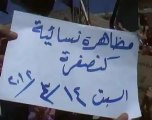 مظاهرة نسائية
كنصفرة
السبت ١٤/ ٤/ ٢٠١٢